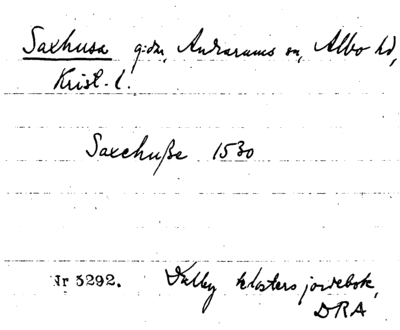 Saxhusa gdn, Andrarums sn, Albo hd,
Krist. l.
Saxehuße 1530
Nr 3292. Dalby klosters jordebok,
DRA